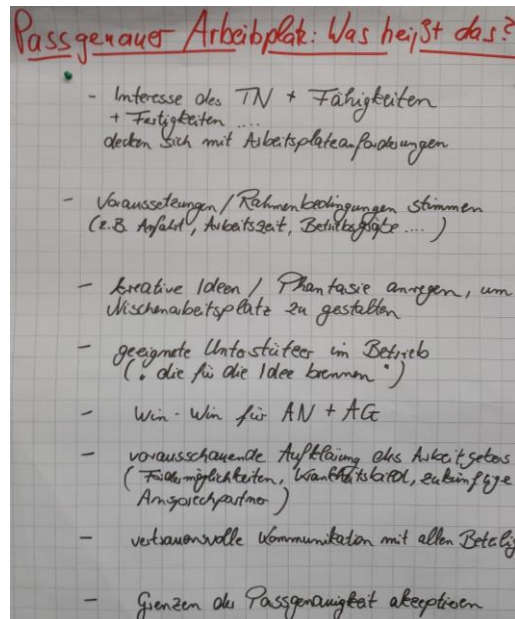 Passgenauer Arbeitsplatz: Was heißt das?
- Interesse des TN + Fähigkeiten
+ Fertigkeiten ....
decken sich mit Arbeitsplatzanforderungen
- Voraussetzungen / Rahmenbedingungen stimmen
(z.B. Anfahrt, Arbeitszeit, Betriebsgröße ....)
- kreative Ideen / Phantasie anregen, um
Nischenarbeitsplatz zu gestalten
- geeignete Unterstützer im Betrieb
(" die für die Idee brennen ")
- Win-Win für AN + AG
- vorausschauende Aufklärung des Arbeitgebers
(Fördermöglichkeiten, Krankheitsbild, zukünftige
Ansprechpartner)
- vertrauensvolle Kommunikation mit allen Beteilig
- Grenzen der Passgenauigkeit akzeptieren